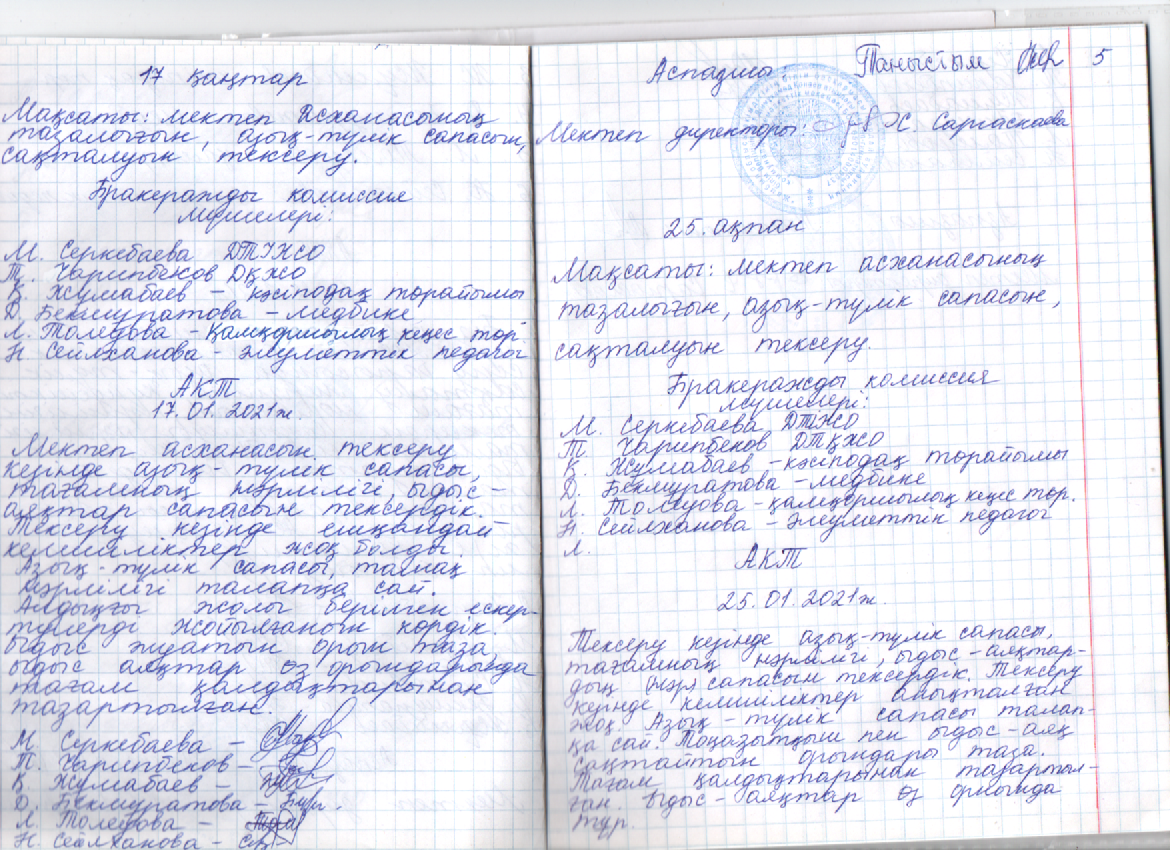 17 қаңтар
Мақсаты: мектеп асханасының
тазалығын, азық-түлік сапасын,
сақталуын тексеру.
Бракеражды комиссия
мүшелері:
М. Серкебаева ДТІЖО
Т. Чарипбеков ДҚЖО
Қ. Жумабаев – кәсіподақ төрайымы
Д. Бекмуратова – медбике
Л. Толеуова – Қамқоршылық кеңес төр
Н Сейлханова – әлуметтік педагог
АКТ
17.01.2021ж.
Мектеп асханасын тексеру
кезінде азық-түлік сапасы,
тағамның нәрлілігі, ыдыс-
аяқтар сапасын тексердік.
Тексеру кезінде ешқандай
келіспеліктер жоқ болды.
Азық-түлік сапасы, тамақ
нәрлілігі талапқа сай.
Алдыңғы жолы берілген ескер-
тулерді жойылғанын көрдік.
Ыдыс жуатын орын таза,
ыдыс аяқтар өз орындарында
тағам қалдықтарынан
тазартылған.
М Серкебаева –
Т. Чарипбеков –
Қ. Жумабаев –
Д. Бекмуратова –
Л Толеуова –
Н. Сейлханова –
Аспазшы: Таныстым 5
Мектеп директоры: Х. Саргаскаева
25. ақпан
Мақсаты: мектеп асханасының
тазалығын, азық-түлік сапасын,
сақталуын тексеру.
Бракеражды комиссия
мүшелері:
М. Серкебаева ДТІЖО
Т Чарипбеков ДТҚЖО
Қ. Жумабаев – кәсіподақ төрайымы
Д. Бекмуратова – медбике
Л. Толеуова – қамқоршылық кеңес төр.
Н. Сейлханова – әлеуметтік педагог
Л.
АКТ
25.01.2021ж.
Тексеру кезінде азық-түлік сапасы,
тағамның нәрлілігі, ыдыс-аяқтар-
дың (нәр) сапасын тексердік. Тексеру
кезінде келіспеліктер анықталған
жоқ. Азық-түлік сапасы талап-
қа сай. Тоңазытқыш пен ыдыс-аяқ
сақтайтын орындары таза.
Тағам қалдықтарынан тазартыл-
ған. Ыдыс-аяқтар өз орнында
тұр.